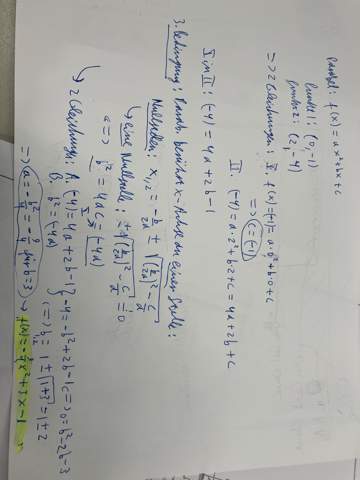 Parabel: f(x) = ax²+bx+c
Punkt 1: (0,-1)
Punkt 2: (2,-4)
=> 2 Gleichungen: I f(x)=(-1)= a·0²+b·0+c
=> c=(-1)
II: (-4) = a·2²+b·2+c = 4a+2b+c
I in II: (-4) = 4a+2b-1
3. Bedingung: Parab. berührt x-Achse an einer Stelle:
Nullstellen: x₁,₂ = -b/2a ± √((b/2a)² - c/a)
↳ eine Nullstelle: ±√((b/2a)² - c/a) = 0
<=> b² = 4ac = (-4a)
↳ 2 Gleichungen: A. (-4)=4a+2b-1 } -4=-b²+2b-1 <=> 0=b²-2b-3
B. b²=(-4a) <=> b₁,₂ = 1 ± √(1+3) = 1 ± 2
=> a = -b²/4 = -9/4 (für b=3) → f(x) = -9/4x²+3x-1